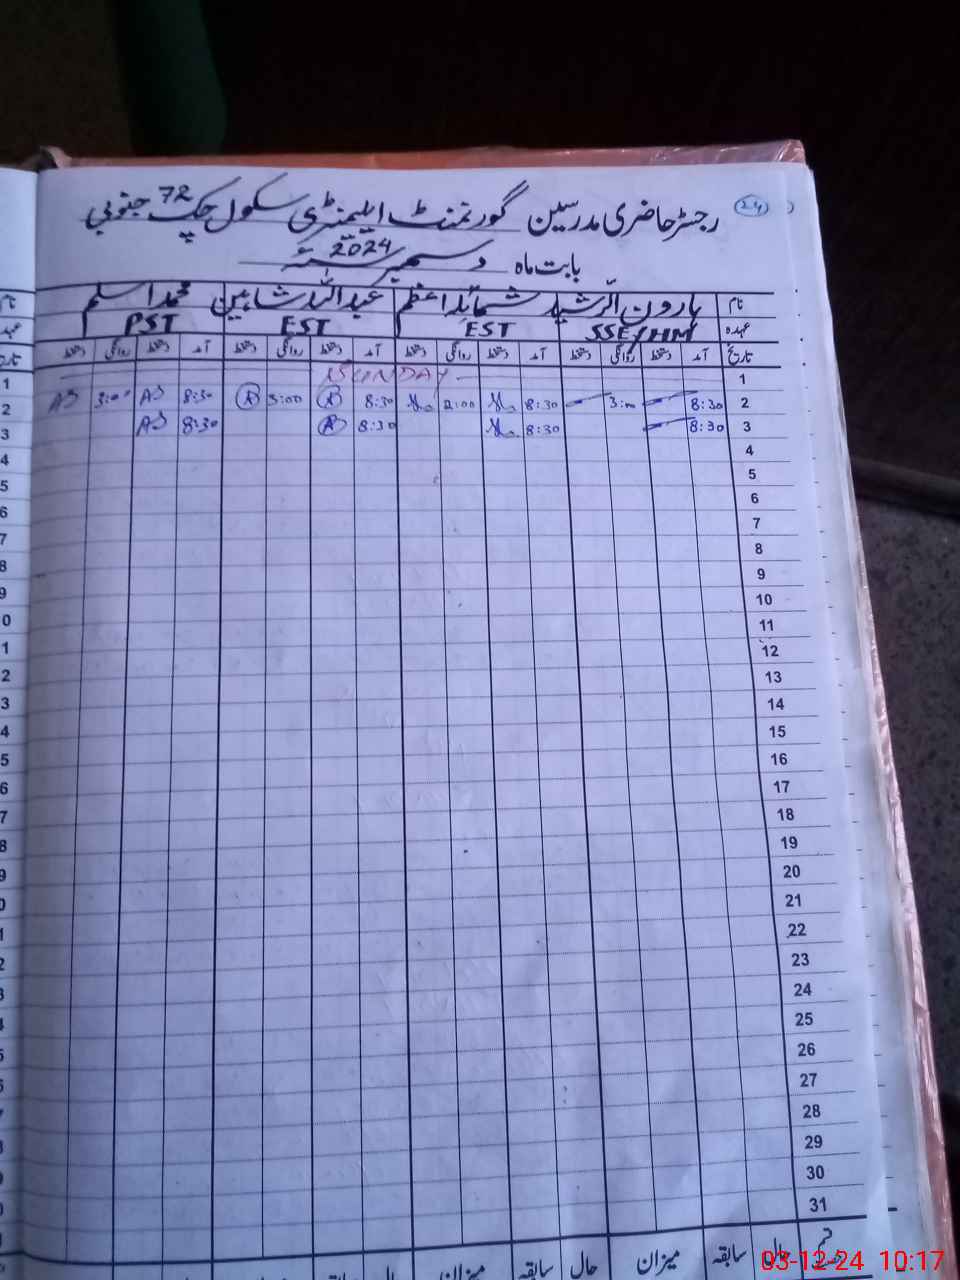 24
رجسٹر حاضری مدرسین گورنمنٹ ایلیمنٹری سکول چک 72 جنوبی
بابت ماہ دسمبر 2024
نام ہارون الرشید شمائلہ اعظم عبداللہ شاہین محمد اسلم
عہدہ SSE/HM EST EST PST
تاریخ آمد دستخط روانگی دستخط آمد دستخط روانگی دستخط آمد دستخط روانگی دستخط آمد دستخط روانگی دستخط
1 SUNDAY
2 8:30 3:00 8:30 2:00 8:30 3:00 8:30 3:00
3 8:30 8:30 8:30 8:30
4
5
6
7
8
9
10
11
12
13
14
15
16
17
18
19
20
21
22
23
24
25
26
27
28
29
30
31
حال سابقہ میزان حال سابقہ میزان حال
03-12-24 10:17